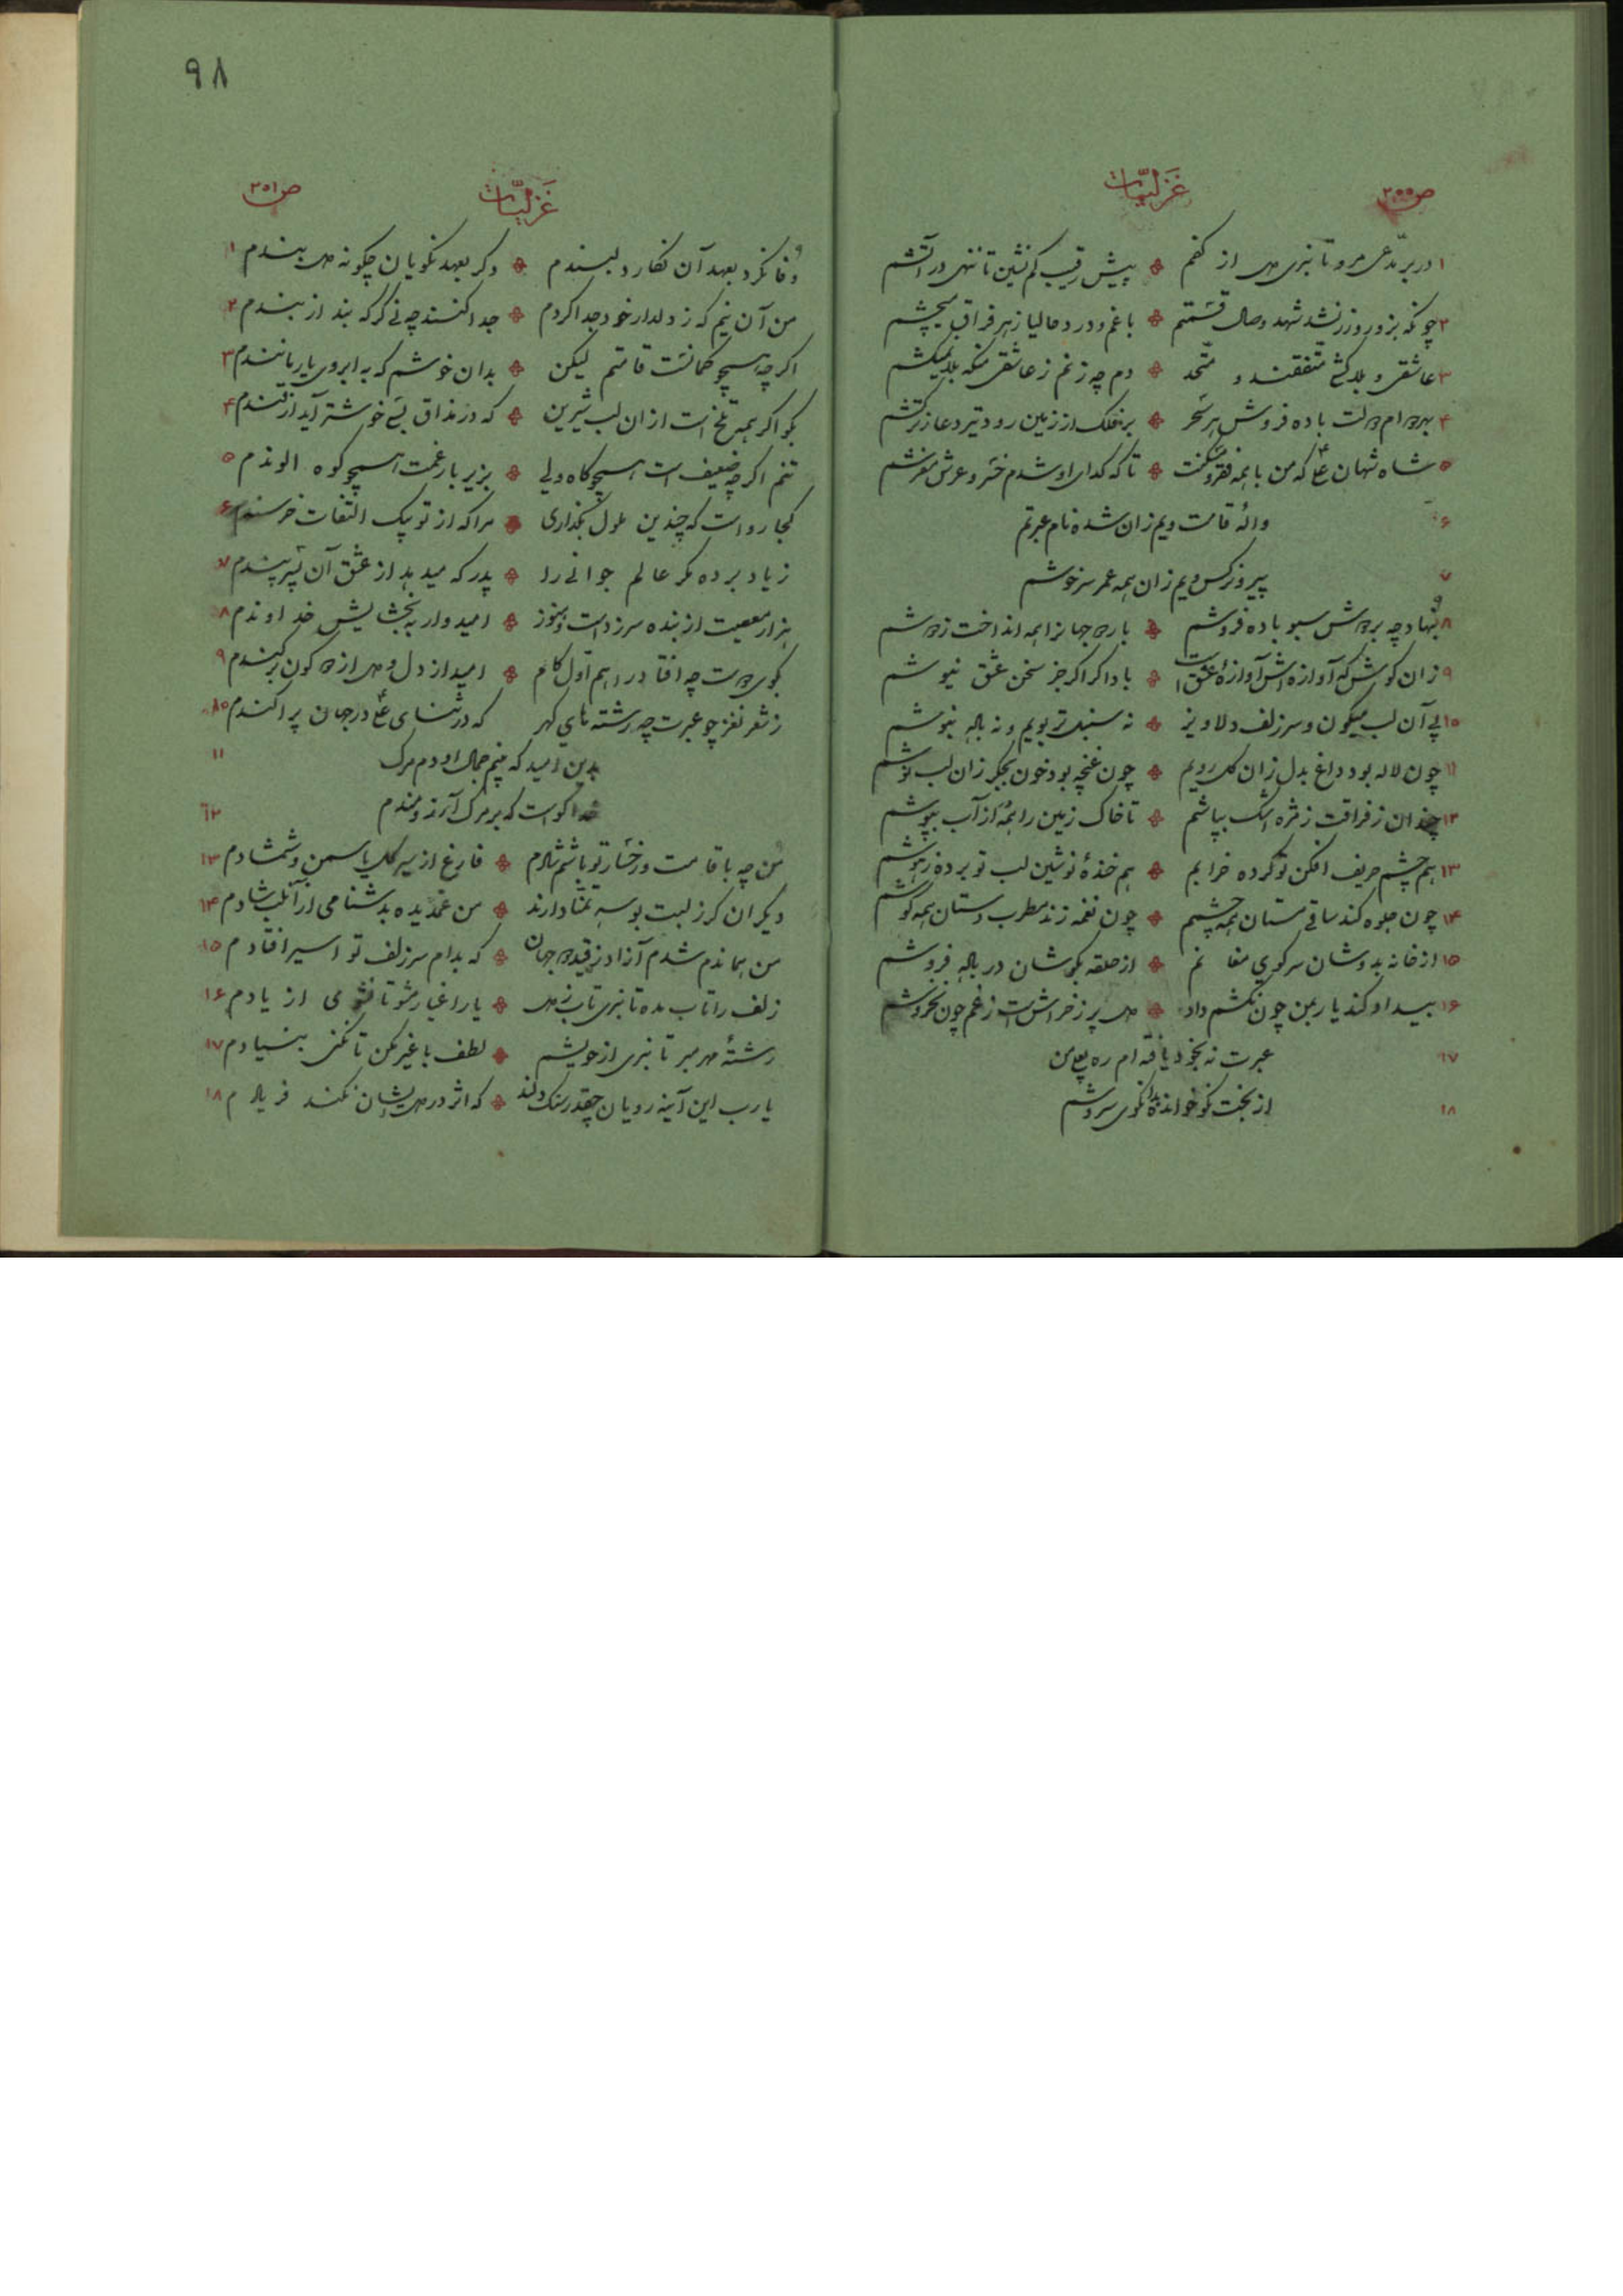 ص ۲۰۰
غزلیّات
۱ در بر مدّعی مرو تا نبری دل از کفم پیش رقیب کم نشین تا ننهی در آتشم
۲ چونکه بزور و زر نشد شهد وصال قسمتم با غم و درد حالیا زهر فراق میچشم
۳ عاشقی و بلاکشی متفقند و متّحد دم چه زنم ز عاشقی منکه بلا نمیکشم
۴ باده فروش هر سحر بر فلک از زمین رود تیر دعا ز ترکشم
۵ شاه شهان علی که من با همه فقر و مسکنت تا که گدای او شدم خسرو عرش مفرشم
۶ واله قامت ویم زان شده نام عبرتم
۷ پیرو نرکس ویم زان همه عمر سرخوشم
۸ بنهاد چه بر دوش سبو باده فروشم بار دو جهانرا همه انداخت ز دوشم
۹ زان گوش که آوازه‌اش آوازهٔ عشق است بادا کر اگر جز سخن عشق نیوشم
۱۰ بی آن لب میگون و سر زلف دلاویز نه سنبل تر بویم و نه باده بنوشم
۱۱ چون لاله بود داغ بدل زان گل رویم چون غنچه بود خون بجگر زان لب نوشم
۱۲ چندان ز فراقت ز مژه اشک بپاشم تا خاک زمین را همه از آب بپوشم
۱۳ هم چشم حریف افکن تو کرده خرابم هم خندهٔ نوشین لب تو برده ز هوشم
۱۴ چون جلوه کند ساقی مستان همه چشمم چون نغمه زند مطرب دستان همه گوشم
۱۵ از خانه بدوشان سر کوی مغانم از حلقه بگوشان در باده فروشم
۱۶ بیداد کند یار بمن چون نکشم داد دل پر ز خراش است ز غم چون نخروشم
۱۷ عبرت نه بخود یافته‌ام ره
۱۸ از بخت نکو خوانده سروشم
۹۸
غزلیّات
ص ۲۰۱
وفا نکرد بعهد آن نگار دلبندم دگر بعهد نکویان چگونه دل بندم ۱
من آن نیم که ز دلدار خود جدا گردم جدا کنند چه نی گر که بند از بندم ۲
اگرچه همچو کمانست قامتم لیکن بدان خوشم که به ابروی یار مانندم ۳
بگو اگر همه تلخ است از ان لب شیرین که در مذاق بسی خوشتر آید از قندم ۴
تنم اگرچه ضعیف است همچو کاه ولی بزیر بار غمت همچو کوه الوندم ۵
کجا رواست که چندین ملول بگذاری مرا که از تو بیک التفات خرسندم ۶
ز یاد برده مگر عالم جوانی را پدر که میدهد از عشق آن پسر پندم ۷
هزار معصیت از بنده سر زداست و هنوز امیدوار به بخشایش خداوندم ۸
بکوی دوست چه افتاد راهم اول گام امید از دل و دل از دو کون برکندم ۹
ز شعر نغز چو عبرت چه رشته‌های گهر که در ثنای علی در جهان پراکندم ۱۰
بدین امید که بینم جمال او دم مرگ ۱۱
خدا گواست که بر مرگ آرزومندم ۱۲
من چه با قامت و رخسار تو باشم شادم فارغ از سیر گل و یاسمن و شمشادم ۱۳
دیگران گر ز لبت بوسه تمنّا دارند من غمدیده بدشنامی از آنلب شادم ۱۴
من هماندم شدم آزاد ز قید دو جهان که بدام سر زلف تو اسیر افتادم ۱۵
زلف را تاب مده تا نبری تاب ز دل یار اغیار مشو تا نشوی از یادم ۱۶
رشتهٔ مهر مبر تا نبری از خویشم لطف با غیر مکن تا نکنی بنیادم ۱۷
یا رب این آینه رویان چقدر سنگ دلند که اثر در دل ایشان نکند فریادم ۱۸